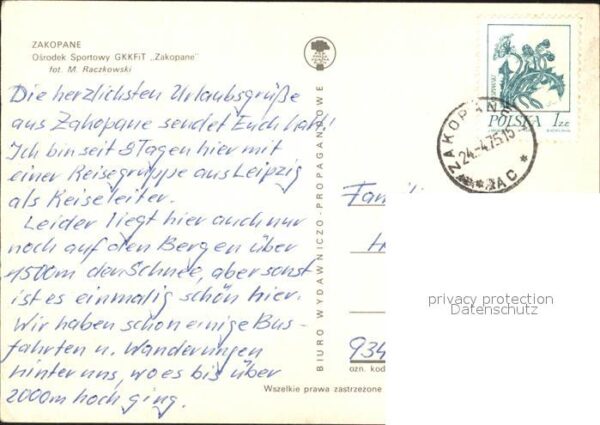 ZAKOPANE
Ośrodek Sportowy GKKFiT „Zakopane"
fot. M. Raczkowski
Die herzlichsten Urlaubsgrüße
aus Zakopane sendet Euch
Ich bin seit 8 Tagen hier mit
einer Reisegruppe aus Leipzig
als Reiseleiter.
Leider liegt hier auch nur
noch auf den Bergen über
1500m der Schnee, aber sonst
ist es einmalig schön hier.
Wir haben schon einige Bus-
fahrten u. Wanderungen
hinter uns, wo es bis über
2000m hoch ging.
BIURO WYDAWNICZO-PROPAGANDOWE
Wszelkie prawa zastrzeżone
POLSKA 1zł
ZAKOPANE
24.-4.75.15
Fam
934
ozn. kod
privacy protection
Datenschutz